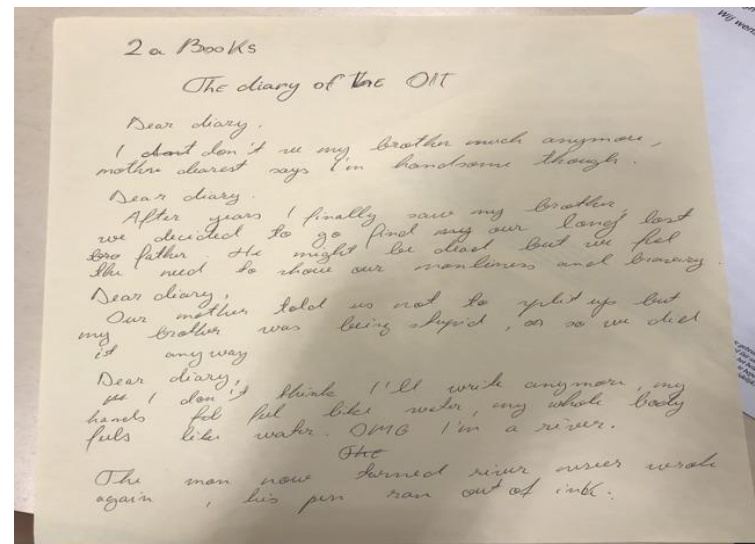 2a Books
The diary of the Ort
Dear diary.
I dont don't see my brother much anymore,
mothre dearest says I'm handsome though.
Dear diary.
After years I finally saw my brother,
we decided to go find my our long lost
bro father. He might be dead but we feel
the need to show our manliness and bravery.
Dear diary,
Our mother told us not to split up but
my brother was being stupid, so we did
it anyway
Dear diary,
I don't think I'll write anymore, my
hands fel feel like water, my whole body
feels like water. OMG I'm a river.
The
The man now turned river never wrote
again, his pen ran out of ink.
Wij